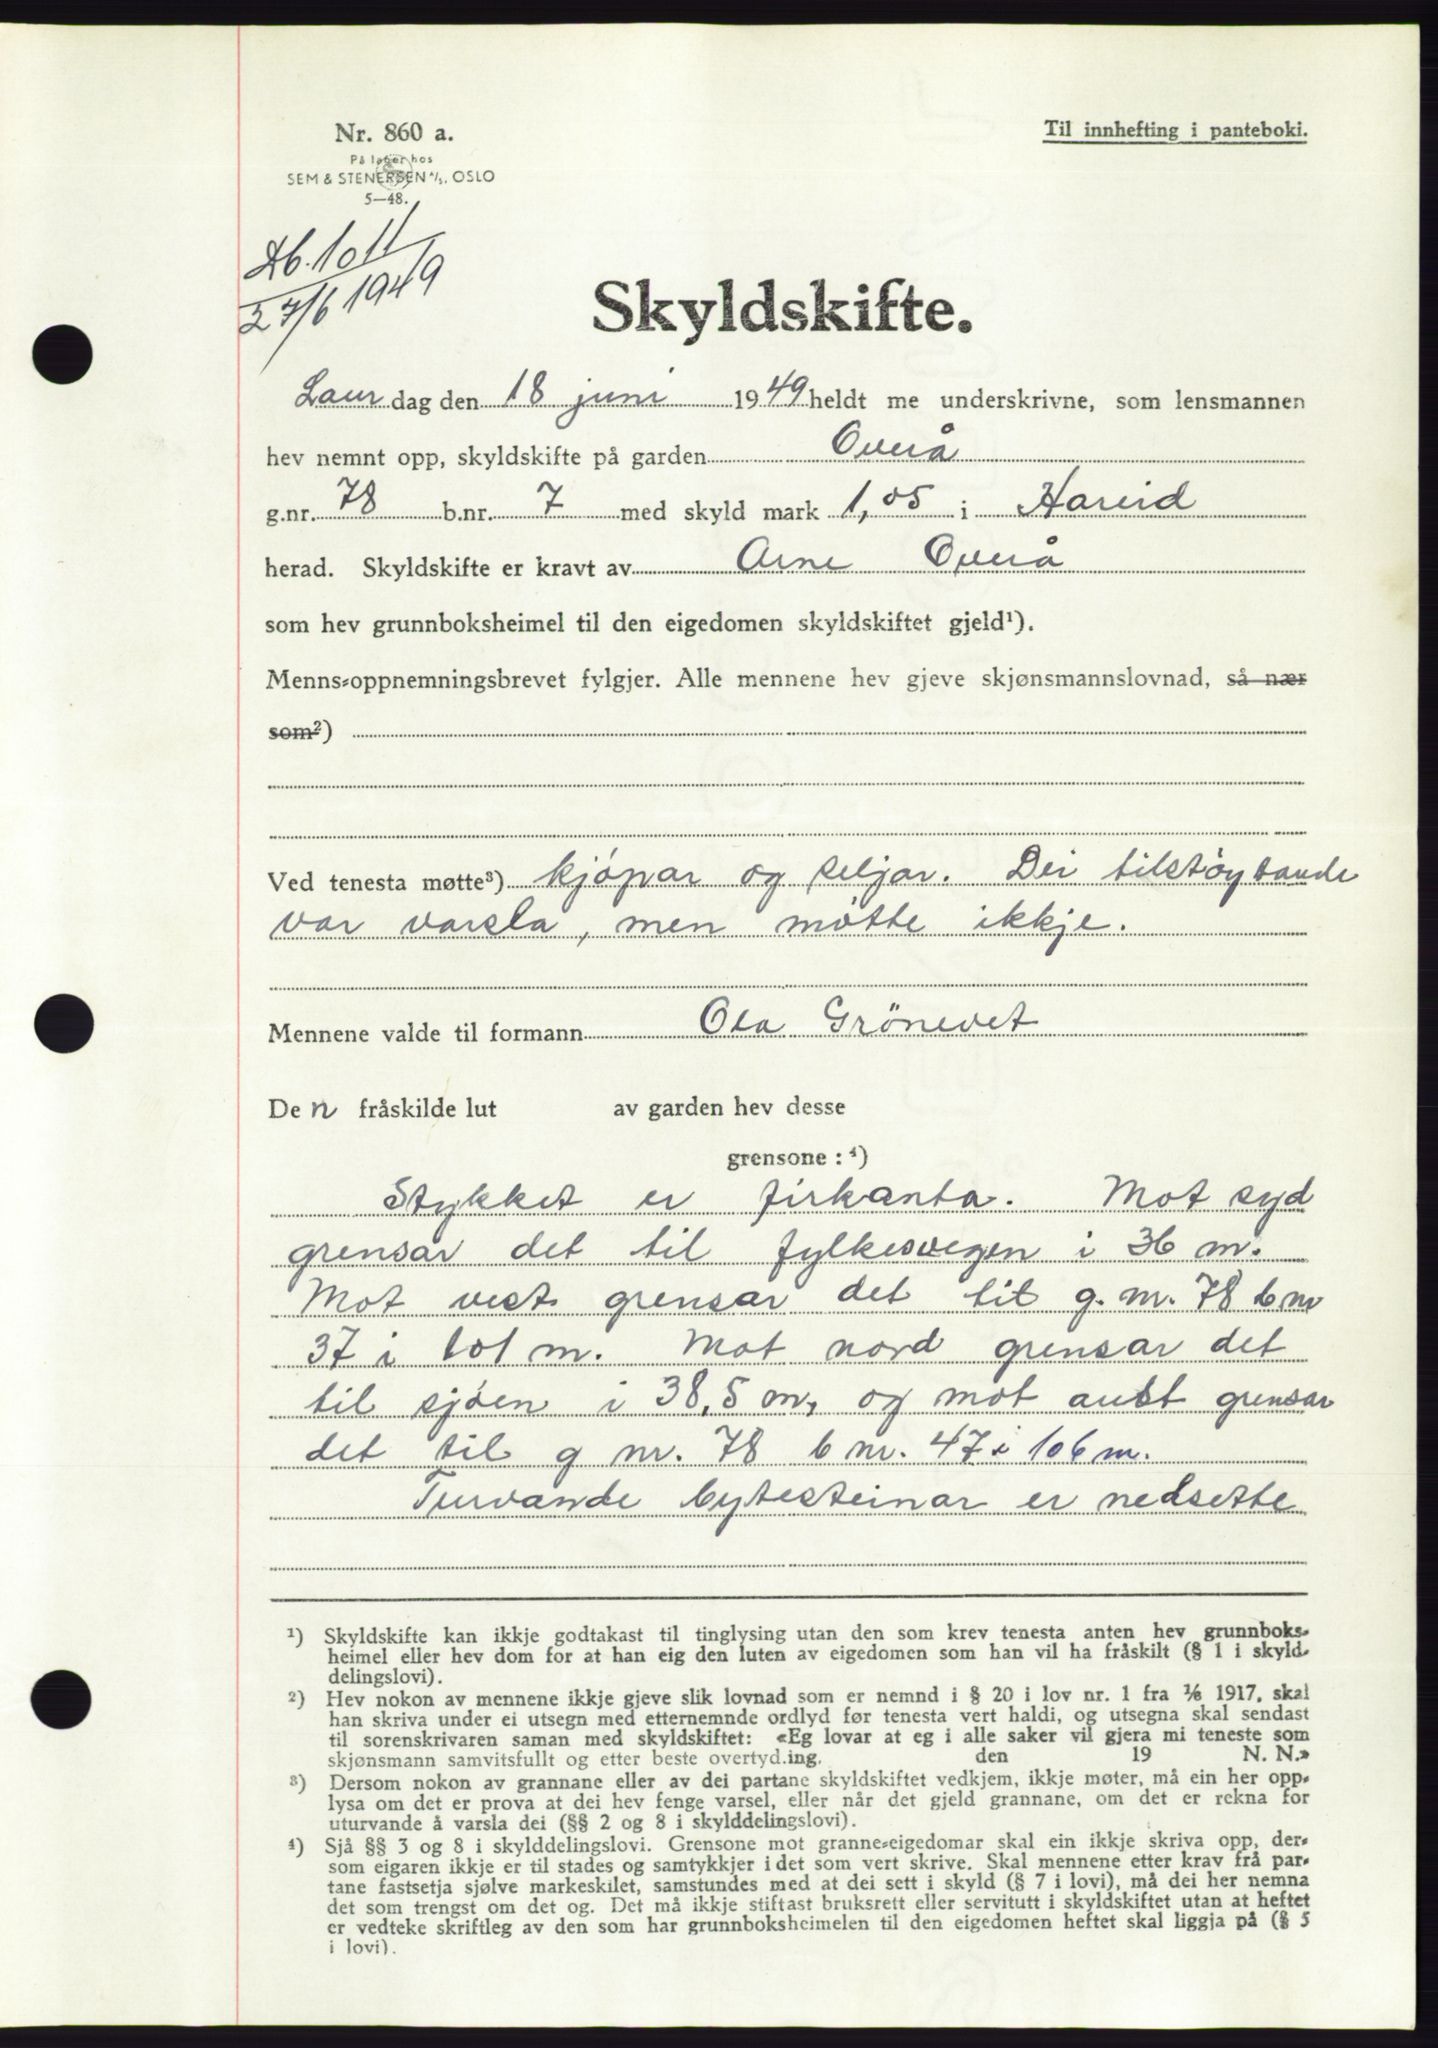 Nr. 860 a.
Til innhefting i panteboki.
På lager hos
SEM & STENERSEN A/S, OSLO
5—48.
Db. 1011
27/6 1949
Skyldskifte.
Laurdag den 18 juni 1949 heldt me underskrivne, som lensmannen
hev nemnt opp, skyldskifte på garden Overå
g.nr. 78 b.nr. 7 med skyld mark 1,05 i Hareid
herad. Skyldskifte er kravt av Arne Overå
som hev grunnboksheimel til den eigedomen skyldskiftet gjeld¹).
Menns-oppnemningsbrevet fylgjer. Alle mennene hev gjeve skjønsmannslovnad, så nær
som²)
Ved tenesta møtte³) kjøpar og seljar. Dei tilstøytande
var varsla, men møtte ikkje.
Mennene valde til formann Ola Grönevet
Den fråskilde lut av garden hev desse
grensone :⁴)
Stykket er firkanta. Mot syd
grensar det til fylkesvegen i 36 m.
Mot vest grensar det til g. nr. 78 b nr
37 i 101 m. Mot nord grensar det
til sjøen i 38,5 m, og mot aust grensar
det til g nr. 78 b nr. 47 i 106 m.
Turvande bytesteinar er nedsette
¹) Skyldskifte kan ikkje godtakast til tinglysing utan den som krev tenesta anten hev grunnboks-
heimel eller hev dom for at han eig den luten av eigedomen som han vil ha fråskilt (§ 1 i skyld-
delingslovi).
²) Hev nokon av mennene ikkje gjeve slik lovnad som er nemnd i § 20 i lov nr. 1 fra 1/6 1917, skal
han skriva under ei utsegn med etternemnde ordlyd før tenesta vert haldi, og utsegna skal sendast
til sorenskrivaren saman med skyldskiftet: «Eg lovar at eg i alle saker vil gjera mi teneste som
skjønsmann samvitsfullt og etter beste overtyding. den 19 N. N.»
³) Dersom nokon av grannane eller av dei partane skyldskiftet vedkjem, ikkje møter, må ein her opp-
lysa om det er prova at dei hev fenge varsel, eller når det gjeld grannane, om det er rekna for
uturvande å varsla dei (§§ 2 og 8 i skylddelingslovi).
⁴) Sjå §§ 3 og 8 i skylddelingslovi. Grensone mot granne-eigedomar skal ein ikkje skriva opp, der-
som eigaren ikkje er til stades og samtykkjer i det som vert skrive. Skal mennene etter krav frå par-
tane fastsetja sjølve markeskilet, samstundes med at dei sett i skyld (§ 7 i lovi), må dei her nemna
det som trengst om det og. Det må ikkje stiftast bruksrett eller servitutt i skyldskiftet utan at heftet
er vedteke skriftleg av den som har grunnboksheimelen til den eigedomen heftet skal liggja på (§ 5
i lovi).